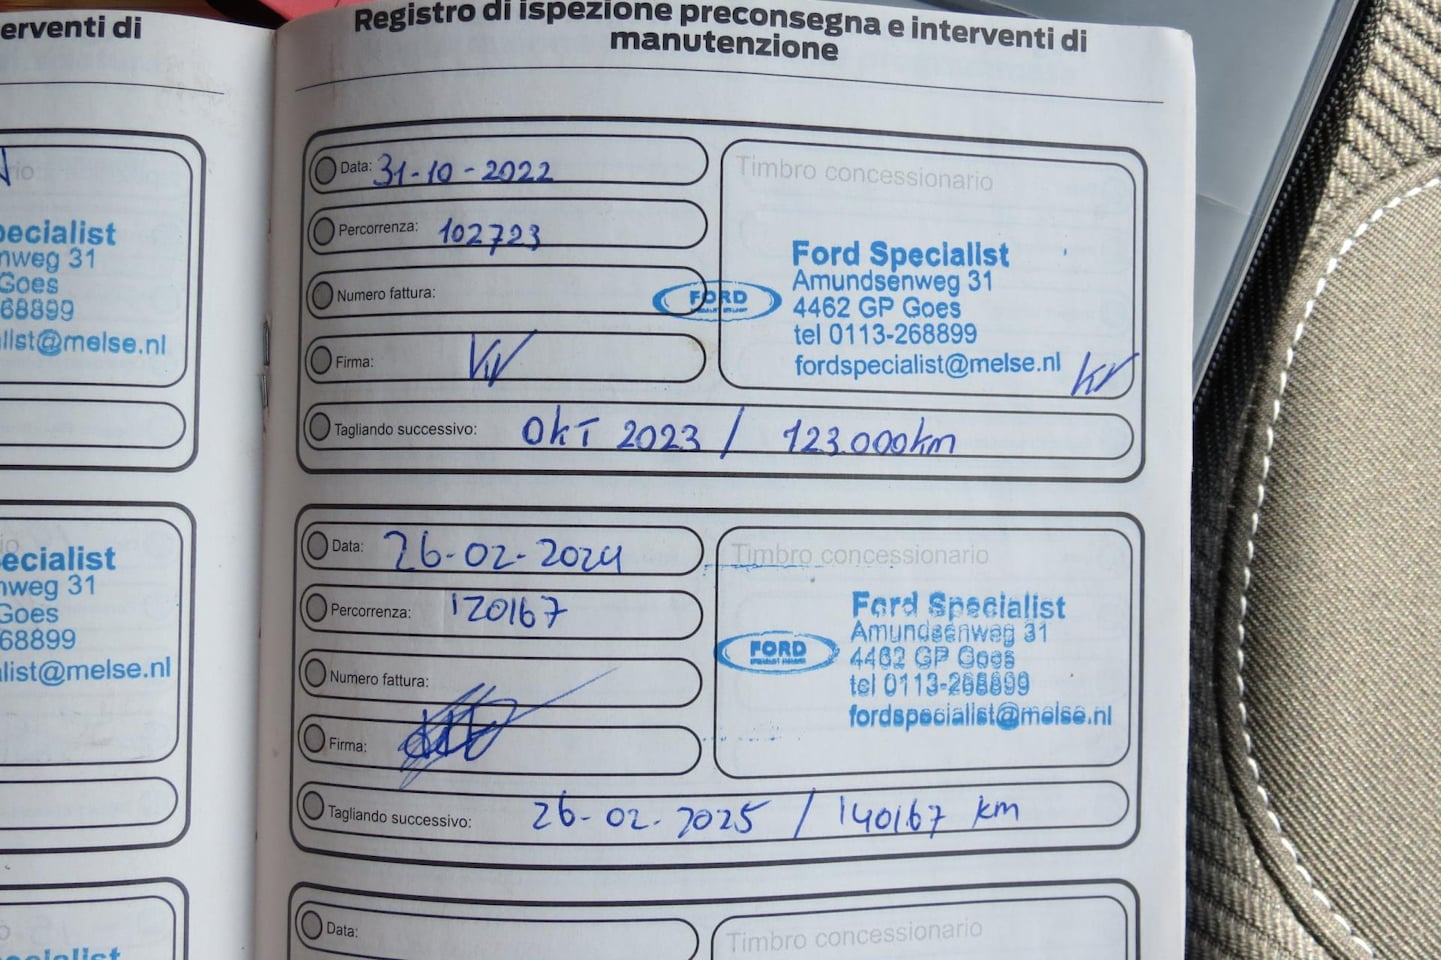 erventi di
ecialist
nweg 31
Goes
68899
list@melse.nl
ecialist
nweg 31
Goes
68899
alist@melse.nl
Registro di ispezione preconsegna e interventi di
manutenzione
Data: 31-10-2022
Percorrenza: 102723
Numero fattura:
Firma:
Timbro concessionario
FORD
Ford Specialist
Amundsenweg 31
4462 GP Goes
tel 0113-268899
fordspecialist@melse.nl
Tagliando successivo: OKT 2023 / 123.000km
Data: 26-02-2024
Percorrenza: 120167
Numero fattura:
Firma:
Timbro concessionario
FORD
Ford Specialist
Amundsenweg 31
4462 GP Goes
tel 0113-268899
fordspecialist@melse.nl
Tagliando successivo: 26-02-2025 / 140167 km
Data:
Timbro concessionario